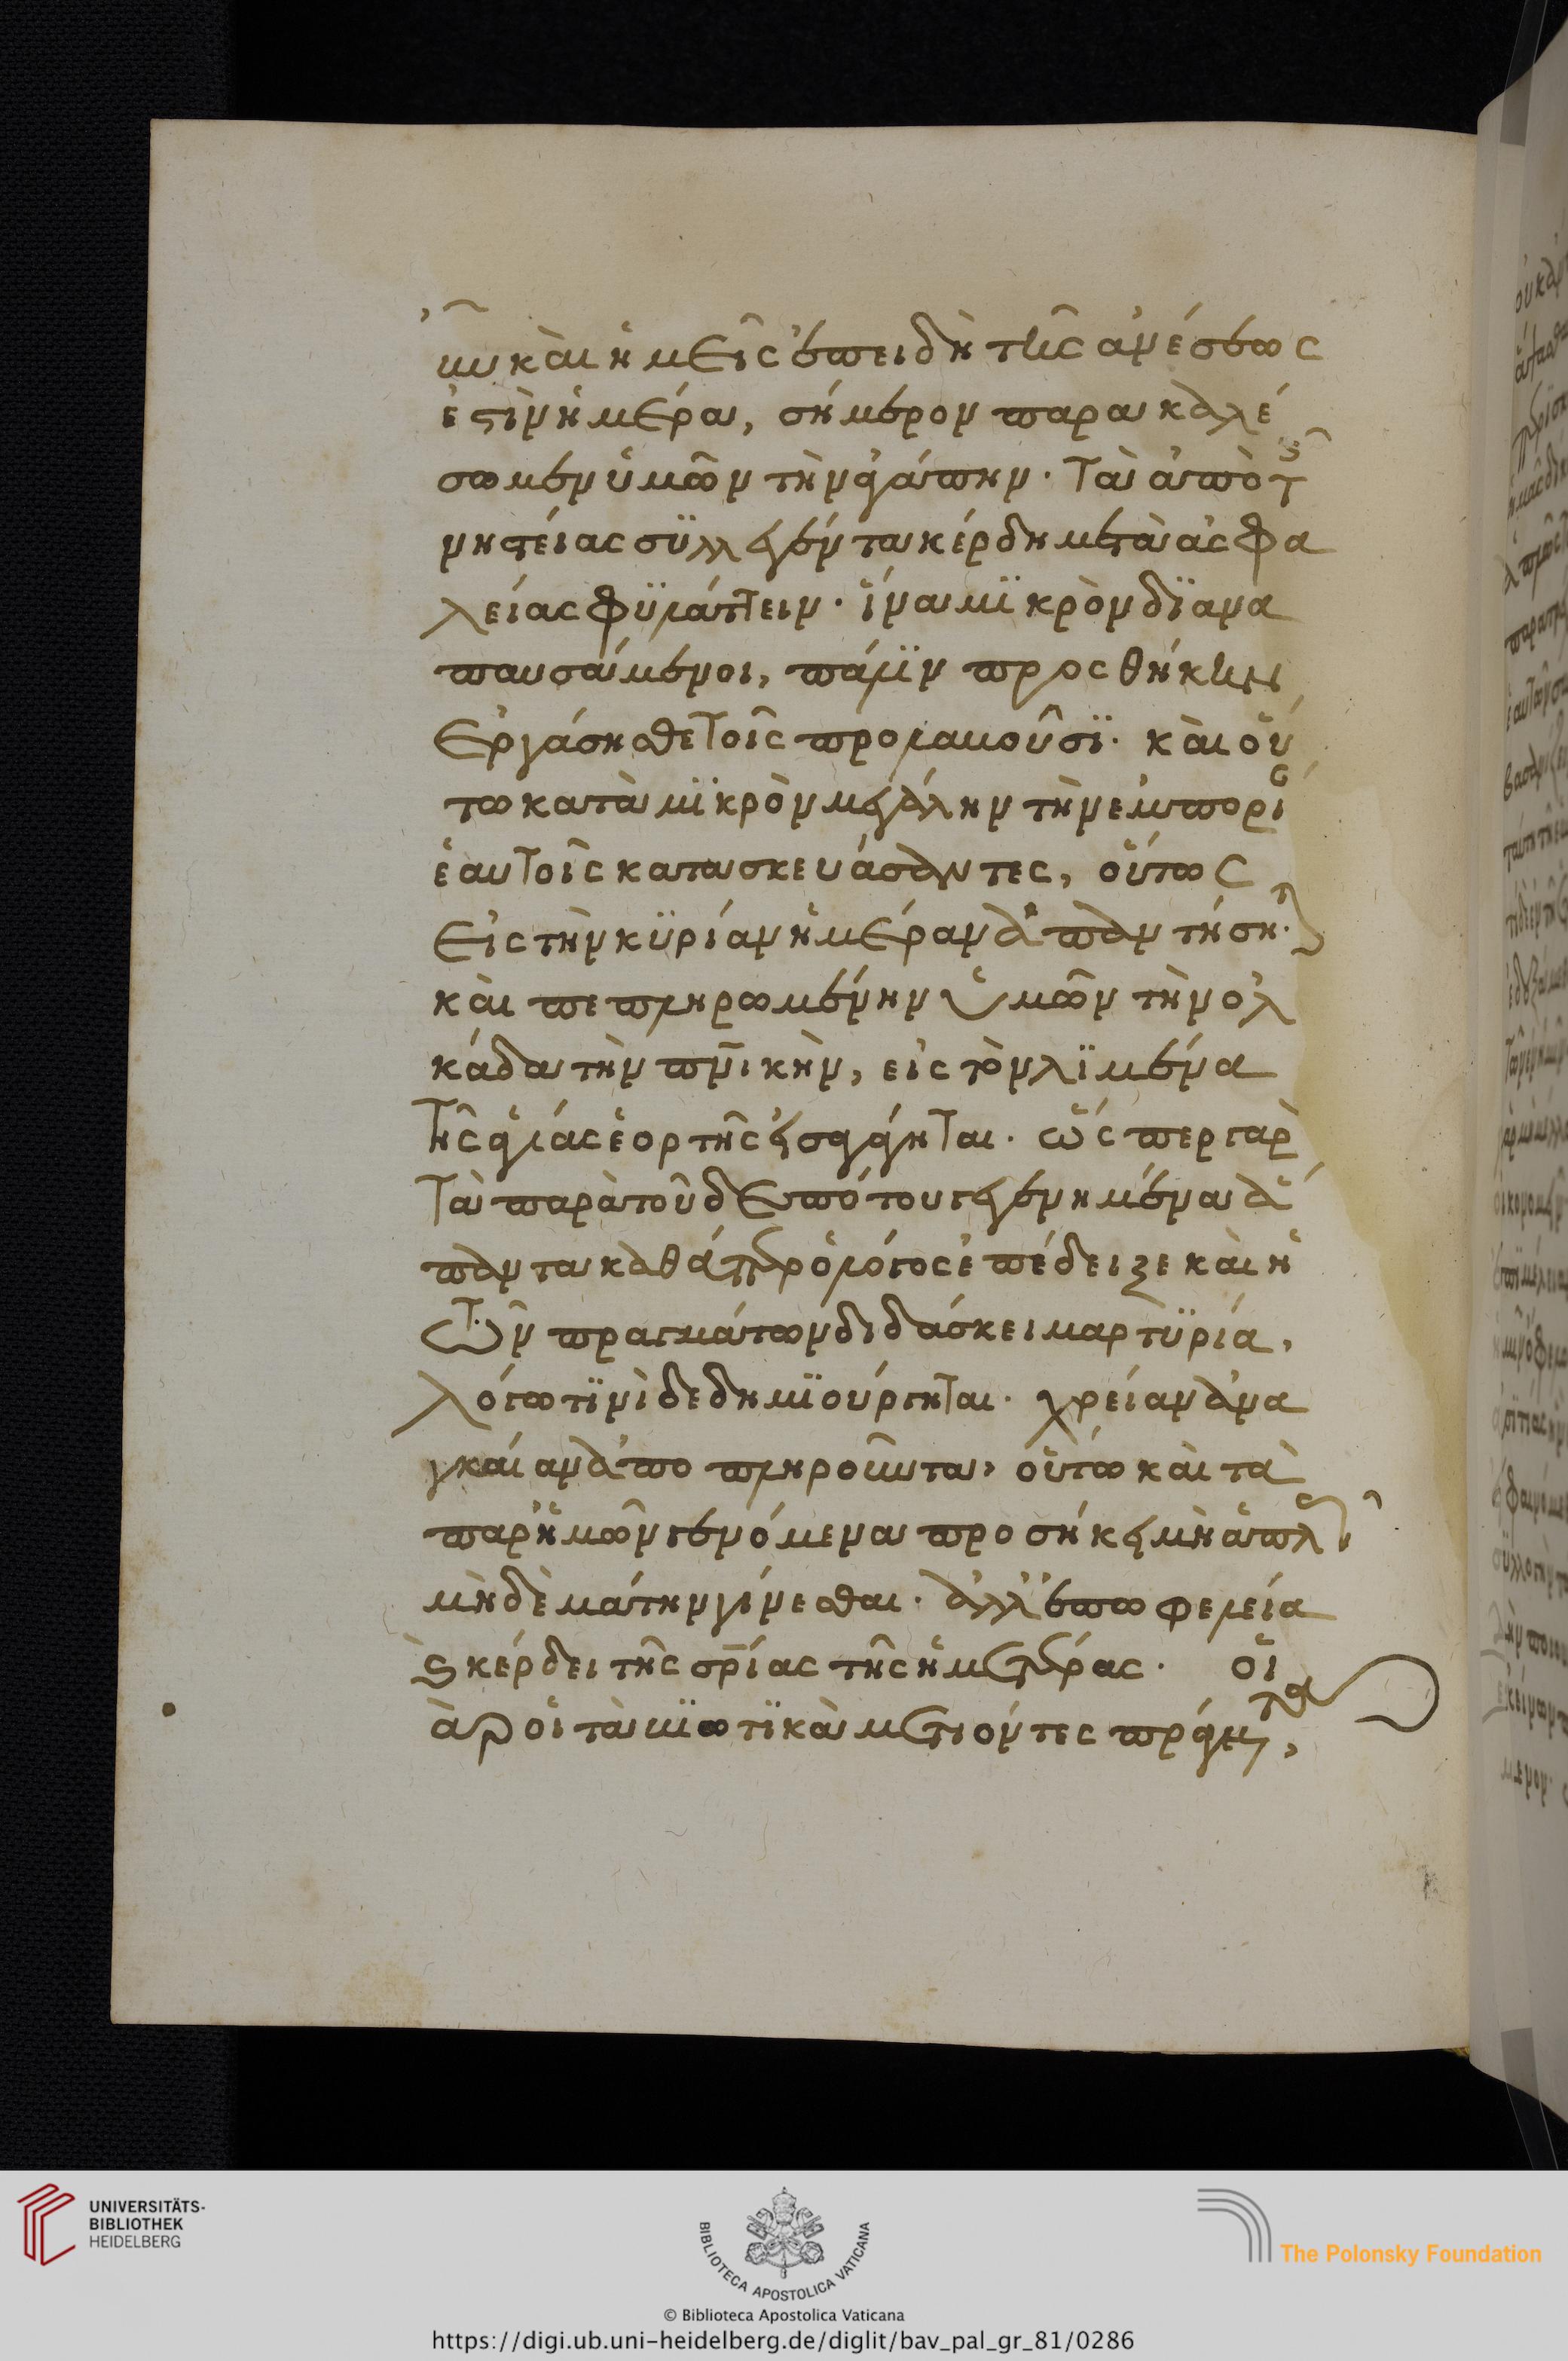 οὖν καὶ ἡμεῖς ἐπειδὴ τῆς ἀνέσεως
ἐστὶν ἡμέρα, σήμερον παρακαλέ
σωμεν ὑμῶν τὴν ἀγάπην· τὰ ἀπὸ τῆς
νηστείας συλλεγέντα κέρδη μετὰ ἀσφα
λείας φϋλάττειν· ἵνα μϊκρὸν δϊανα
παυσάμενοι, πάλϊν προσθήκην
ἐργάσησθε τοῖς προλαβοῦσϊ· καὶ οὕ
τω κατὰ μϊκρὸν μεγάλην τὴν ἐμπορίαν
ἑαυτοῖς κατασκευάσαντες, οὕτως
εἰς τὴν κϋρίαν ἡμέραν ἀπαντήσητε·
καὶ πεπληρωμένην ὑμῶν τὴν ὁλ
κάδα τὴν πνικὴν, εἰς τὸν λϊμένα
τῆς ἁγίας ἑορτῆς εἰσαγάγηται· ὥσπερ γὰρ
τὰ παρὰ τοῦ δεσπότου γεγενημένα ἅ
παντα καθάπερ ὁ λόγος ἐπέδειξε καὶ ἡ
τῶν πραγμάτων διδάσκει μαρτϋρία,
λόγω τϊνὶ δεδημϊούργηται· χρείαν ἀνα
γκαίαν ἀποπληροῦντα, οὕτω καὶ τὰ
παρ' ἡμῶν γενόμενα προσήκει μὴ ἁπλῶς
μὴδὲ μάτην γίνεσθαι· ἀλλ' ἐπωφελεία
καὶ κέρδει τῆς σρίας τῆς ἡμετέρας· οἱ
γὰρ οἱ τὰ βϊωτϊκὰ μετιόντες πράγματα,
UNIVERSITÄTS-
BIBLIOTHEK
HEIDELBERG
BIBLIOTECA APOSTOLICA VATICANA
© Biblioteca Apostolica Vaticana
The Polonsky Foundation
https://digi.ub.uni-heidelberg.de/diglit/bav_pal_gr_81/0286